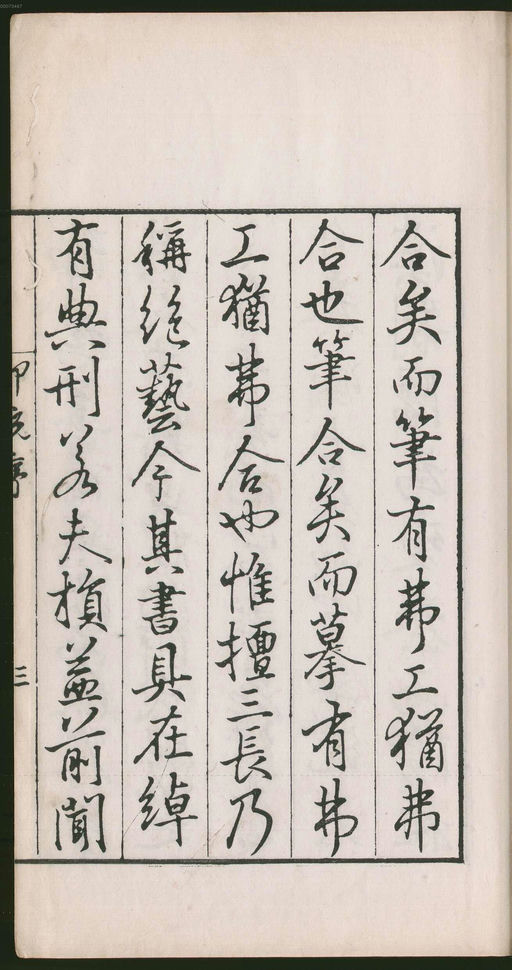 合矣而筆有弗工猶弗
合也筆合矣而摹有弗
工猶弗合也惟擅三長乃
稱絕藝今其書具在綽
有典刑若夫損益前聞
印統序
三
00073467